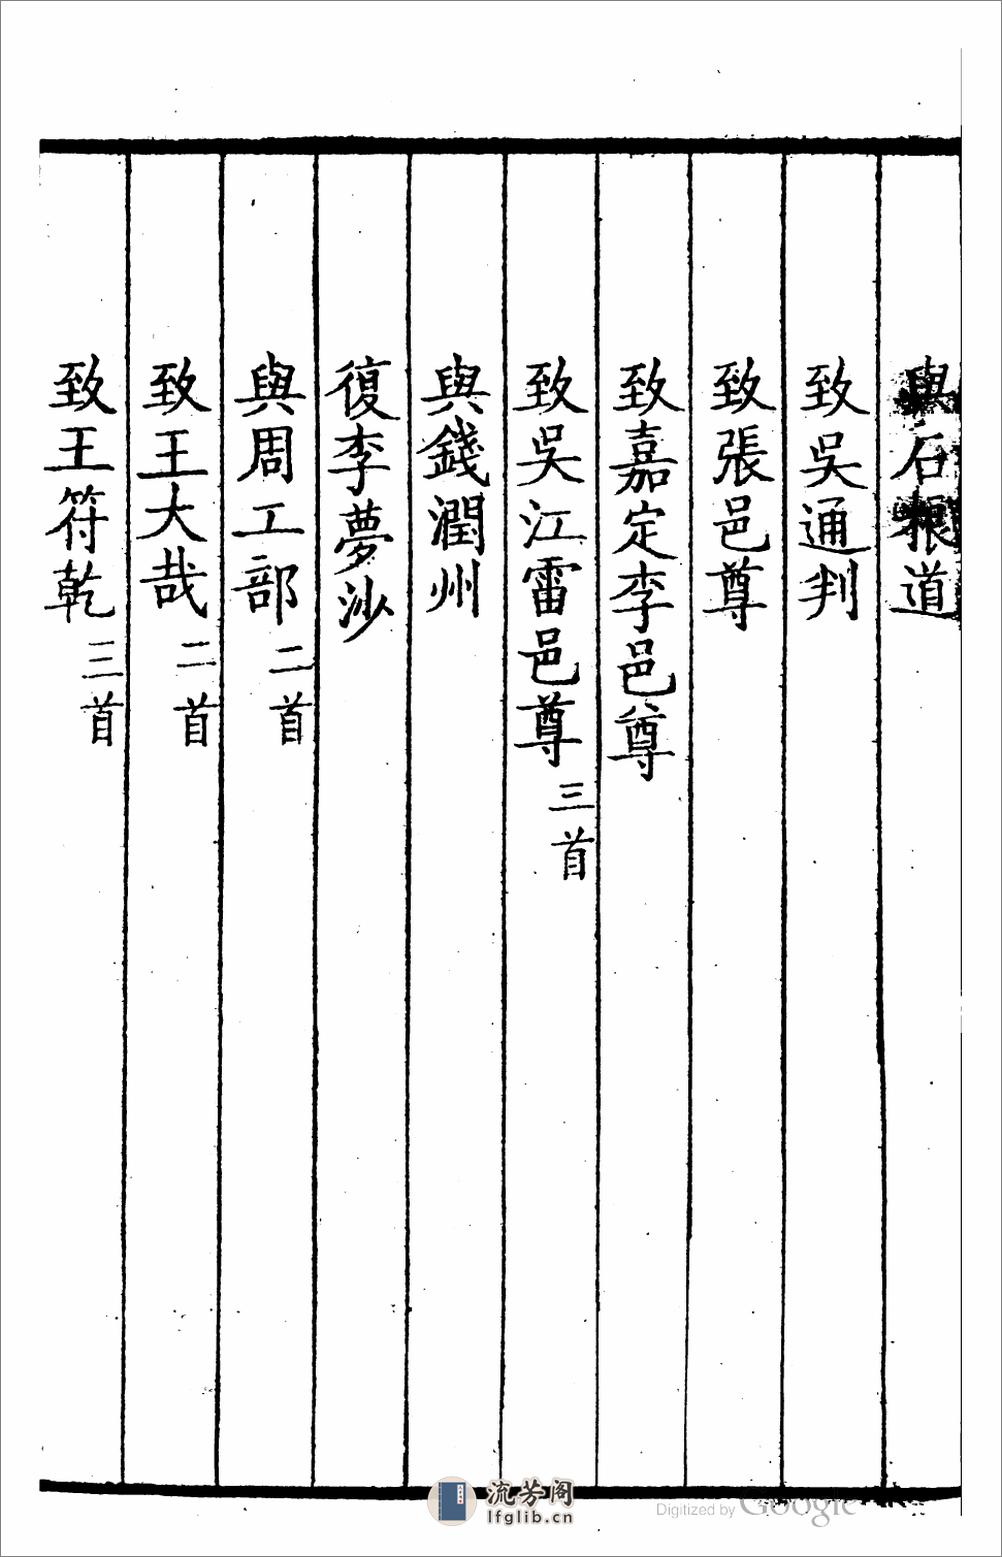 與石糧道
致吳通判
致張邑尊
致嘉定李邑尊
致吳江雷邑尊三首
與錢潤州
復李夢沙
與周工部二首
致王大哉二首
致王符乾三首
流芳阁
lfglib.cn
Digitized by Google